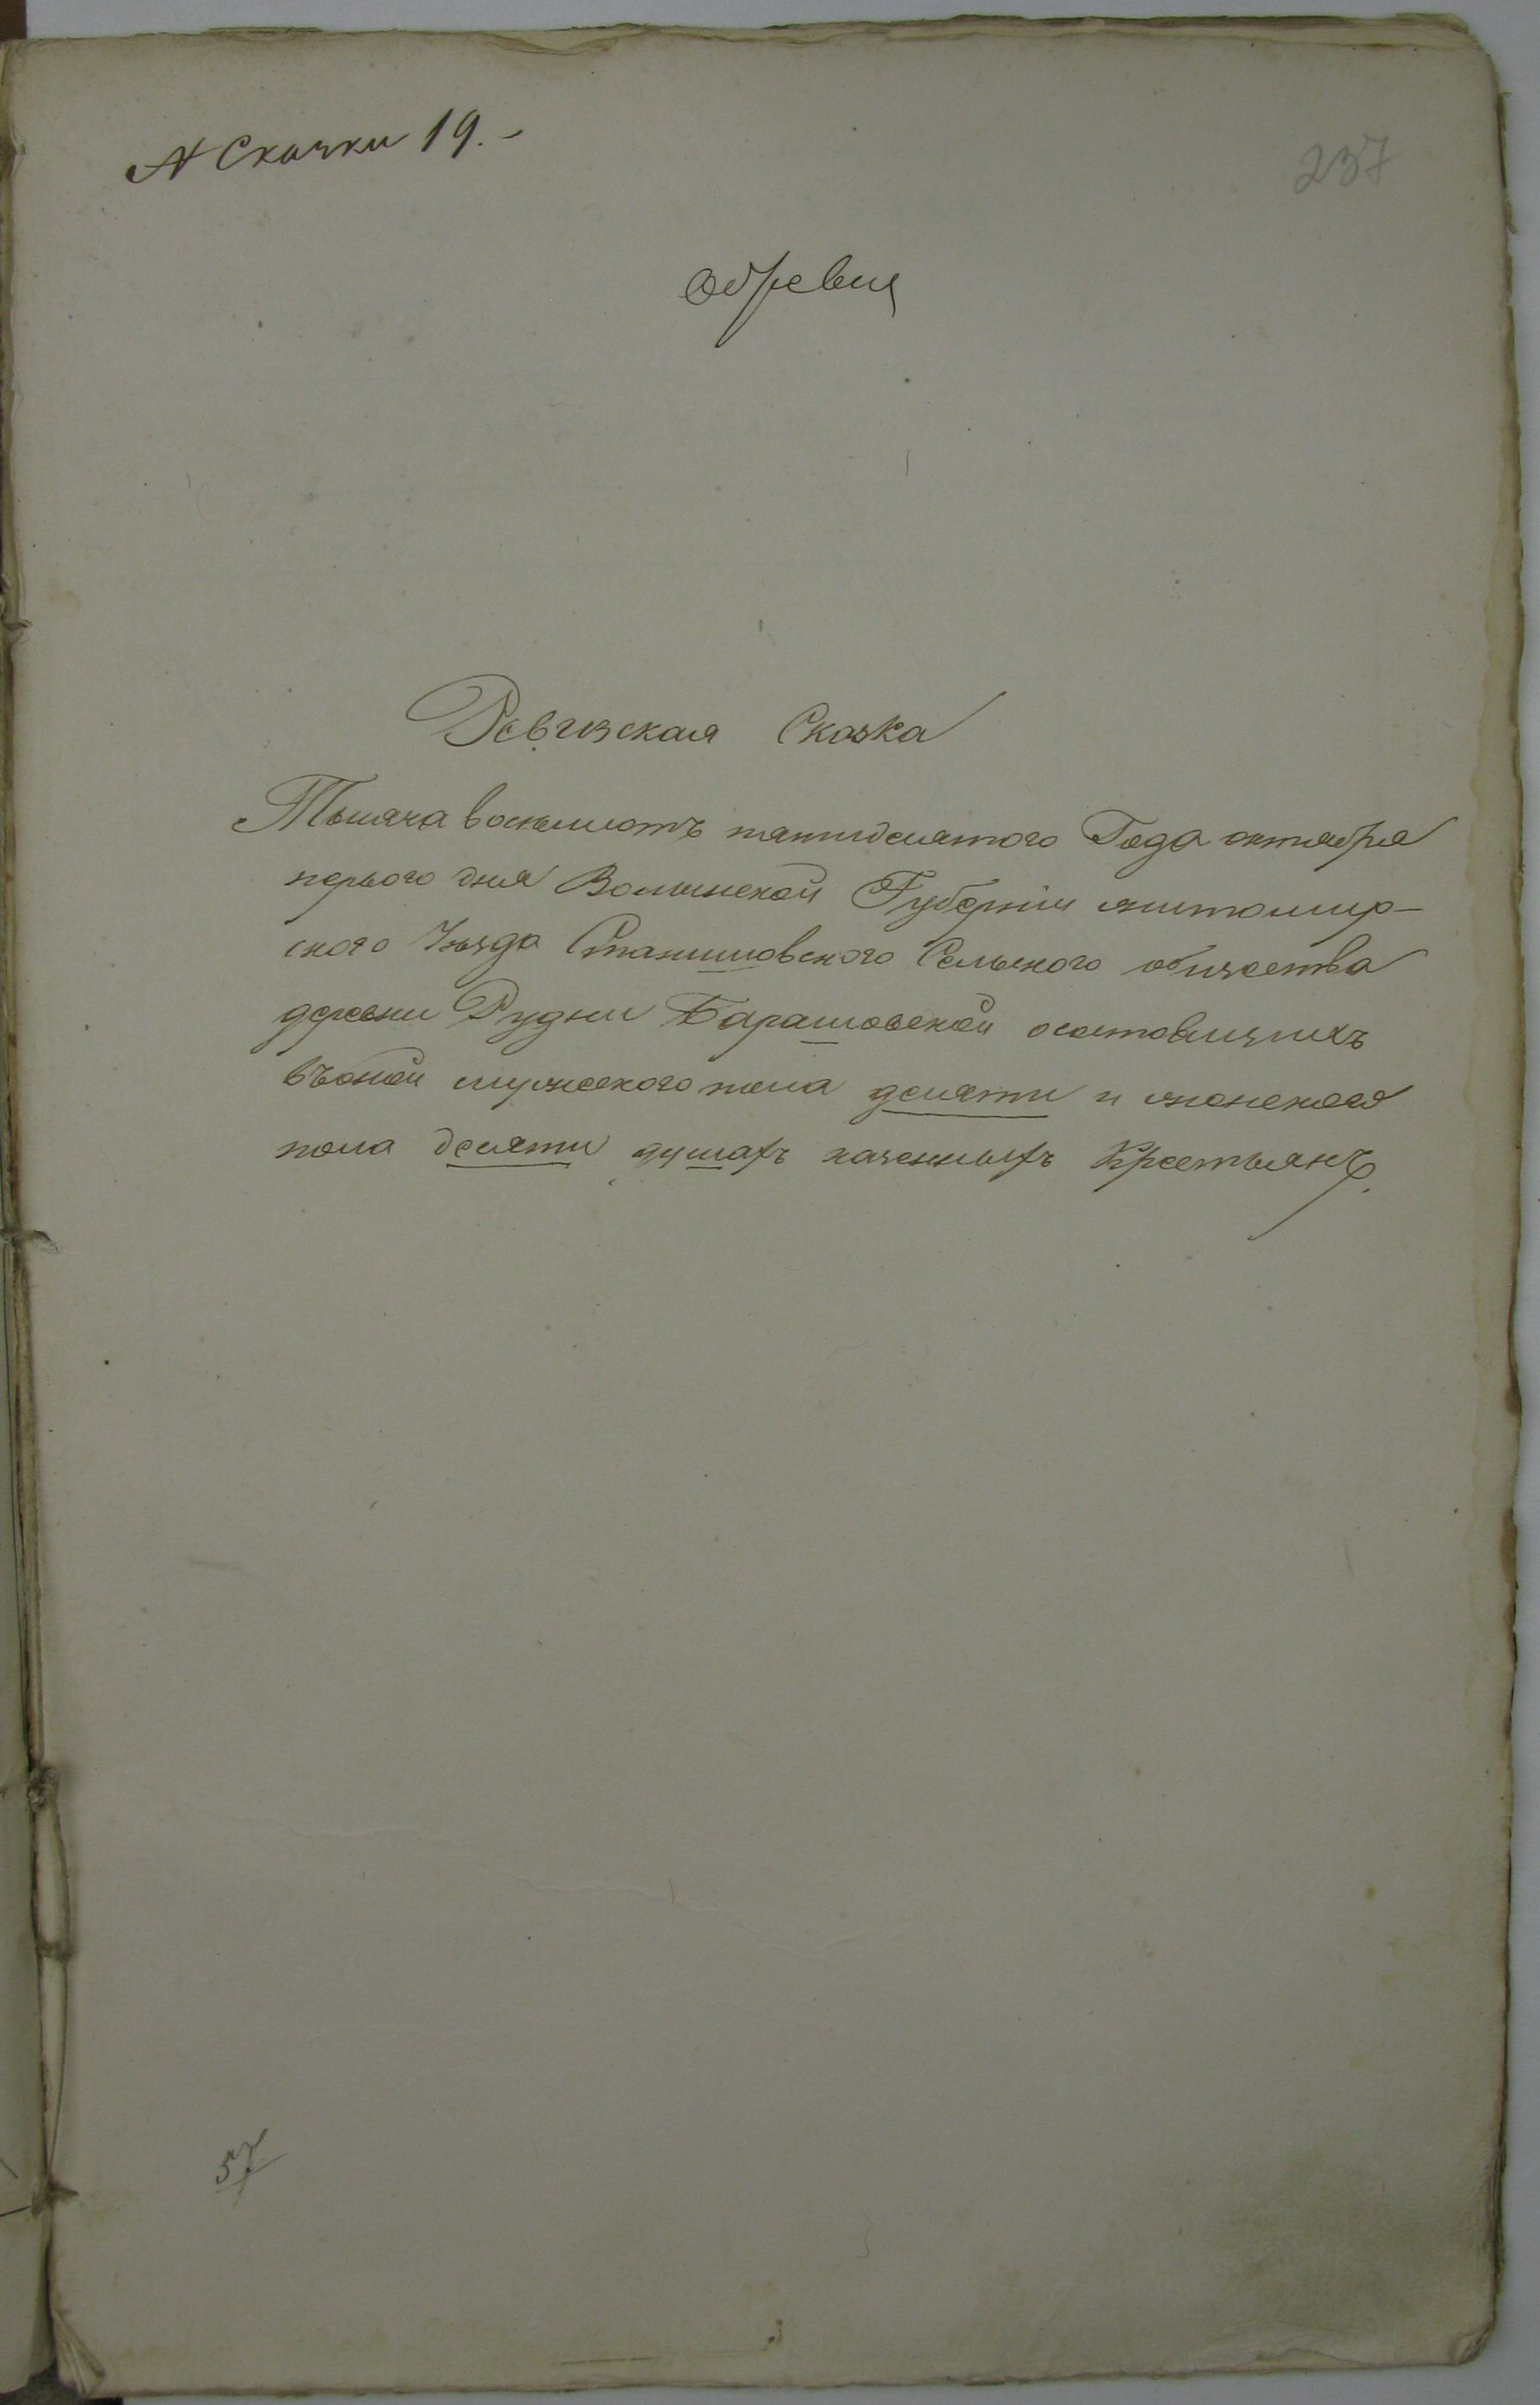 № Сказки 19.-
237
Ревизская Сказка
Тысяча восемьсотъ пятидесятого Года октября
первого дня Волынской Губерніи житомир-
ского Уезда Станишовского Сельского общества
деревни Рудни Барашовской о состоящихъ
въ оной мужеского пола десяти и женского
пола десяти душахъ казенныхъ Крестьянъ.
57